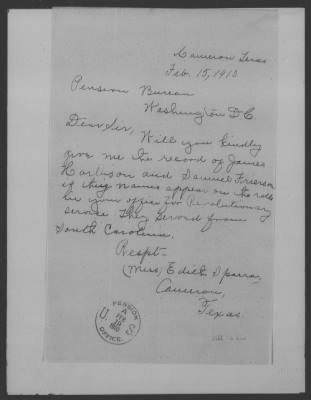 Cameron Texas
Feb. 15, 1910
Pension Bureau
Washington D.C.
Dear Sir, Will you kindly
give me the record of James
Harbison and Samuel Frierson
if they names appear on the rolls
in your office for Revolutionary
service. They served from
South Carolina.
Respt-
(Miss) Edith
Cameron,
Texas.
PENSION
U. S.
A
FEB
1910
OFFICE.